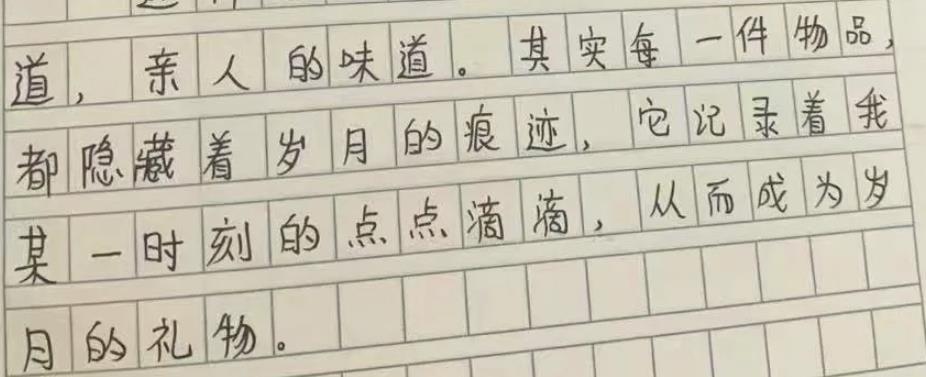 道，亲人的味道。其实每一件物品，
都隐藏着岁月的痕迹，它记录着我
某一时刻的点点滴滴，从而成为岁
月的礼物。